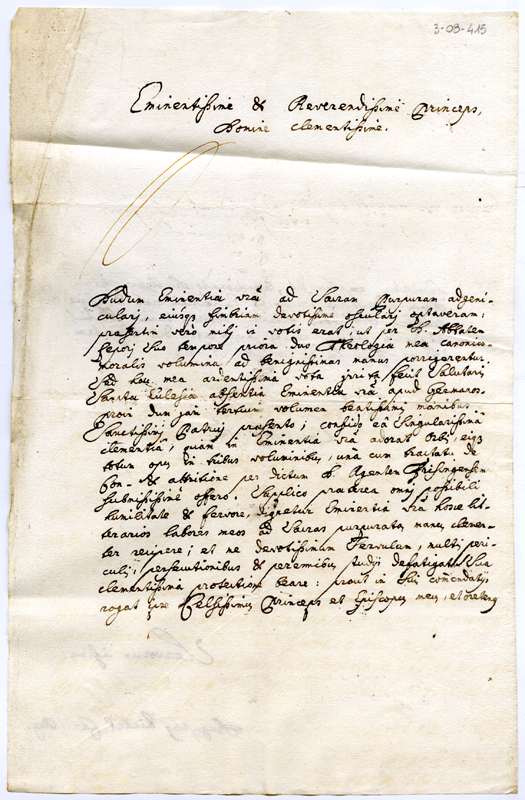 3-09-415
Eminentissime & Reverendissime Princeps,
Domine Clementissime.
Dudum Eminentiae vrae ad Sacram Purpuram adgeni-
culari, eiusque fimbriam devotissime osculari optaveram;
praesertim vero mihi in votis erat, ut per D. Abbatem
suo tempore priora duo Theologiae meae canonico-
moralis volumina ad benignissimas manus porrigerentur.
Sed haec mea ardentissima vota irrita fecit salutaris
Sanctae Ecclesiae absentia Eminentiae vrae apud Germanos.
dum jam tertium volumen beatissimis manibus
Sanctissimi Patris praesento; confisus ea singularissima
clementia, quam in Eminentia vra adorat Orbis, eius
totum opus in tribus voluminibus, una cum tractatu de
Con- & attritione per dictum D. Agentem Frisingensem
submisissime offero. Supplico praeterea omni possibili
humilitate & fervore, dignetur Eminentia vra hosce lit-
terarios labores meos ad Sacras purpuratas manus clemen-
ter recipere; et me devotissimum servulum, multis peri-
culis, persecutionibus & perennibus studijs defatigatum Sua
clementissima protectione beare: prout in suis comendatijs
rogat Celsissimus Princeps et Episcopus meus, et